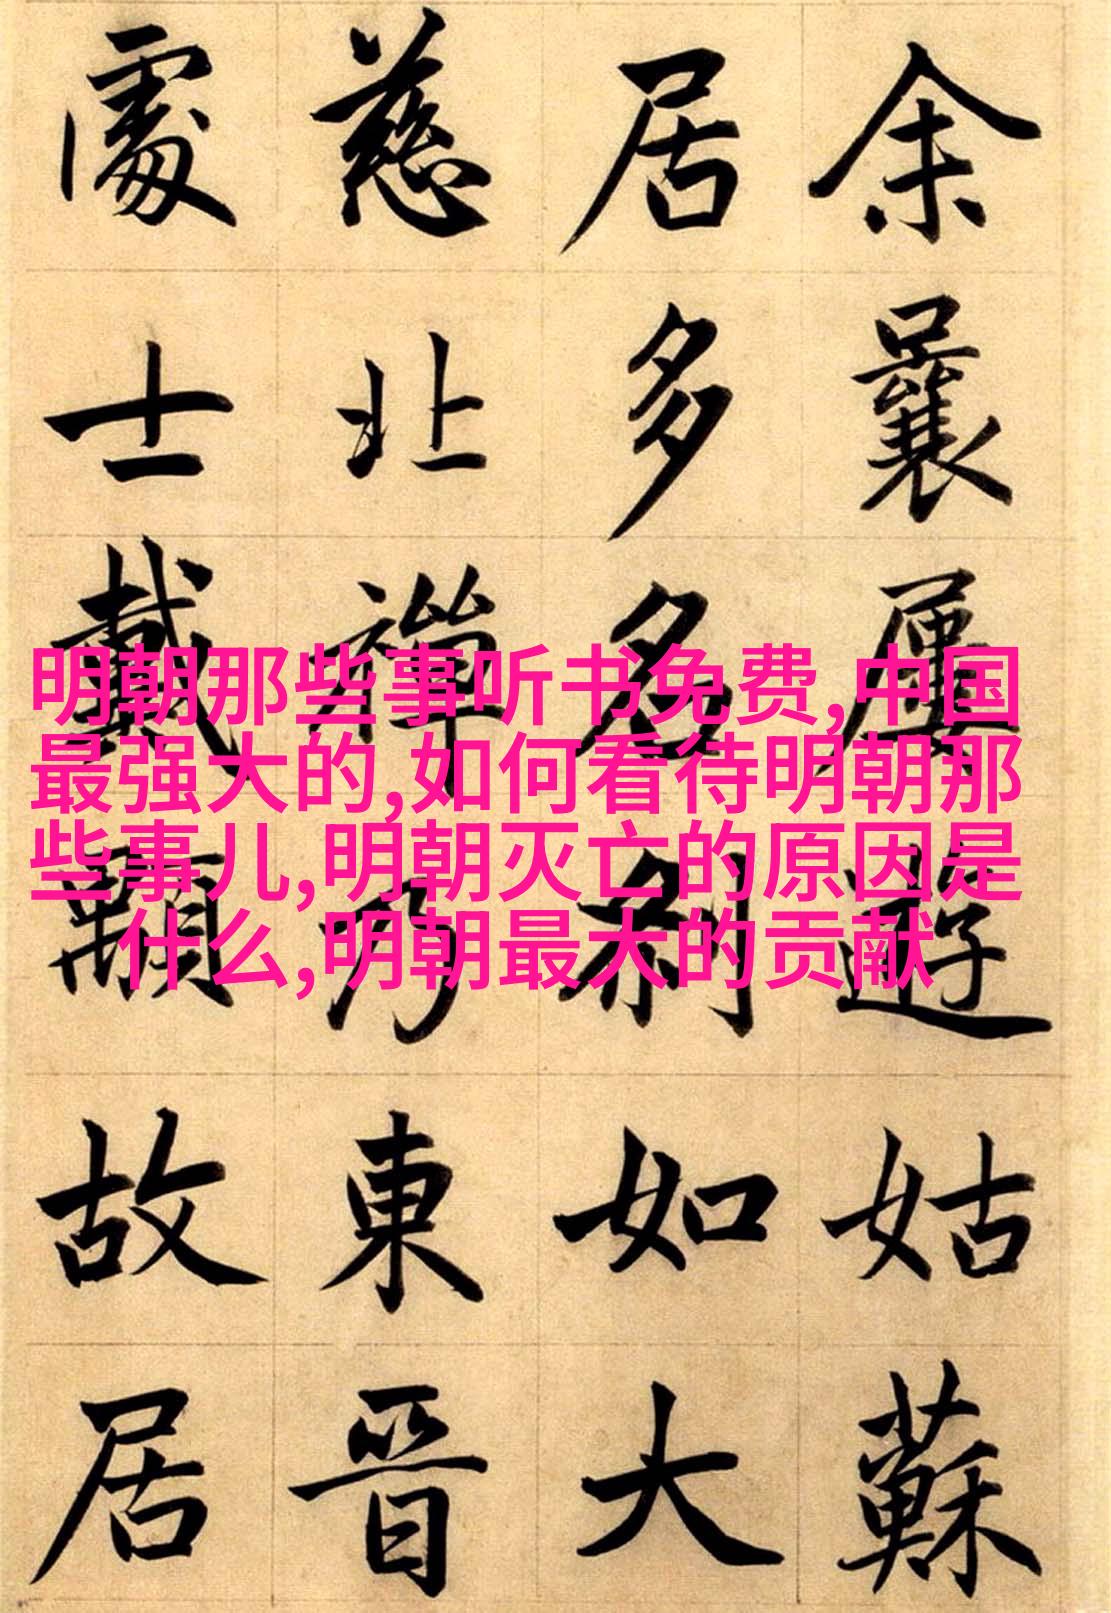 余曩屢遊姑蘇
居多名刹如大
慈北禪乃東晋
處士戴顒故居
明朝那些事听书免费,中国
最强大的,如何看待明朝那
些事儿,明朝灭亡的原因是
什么,明朝最大的贡献